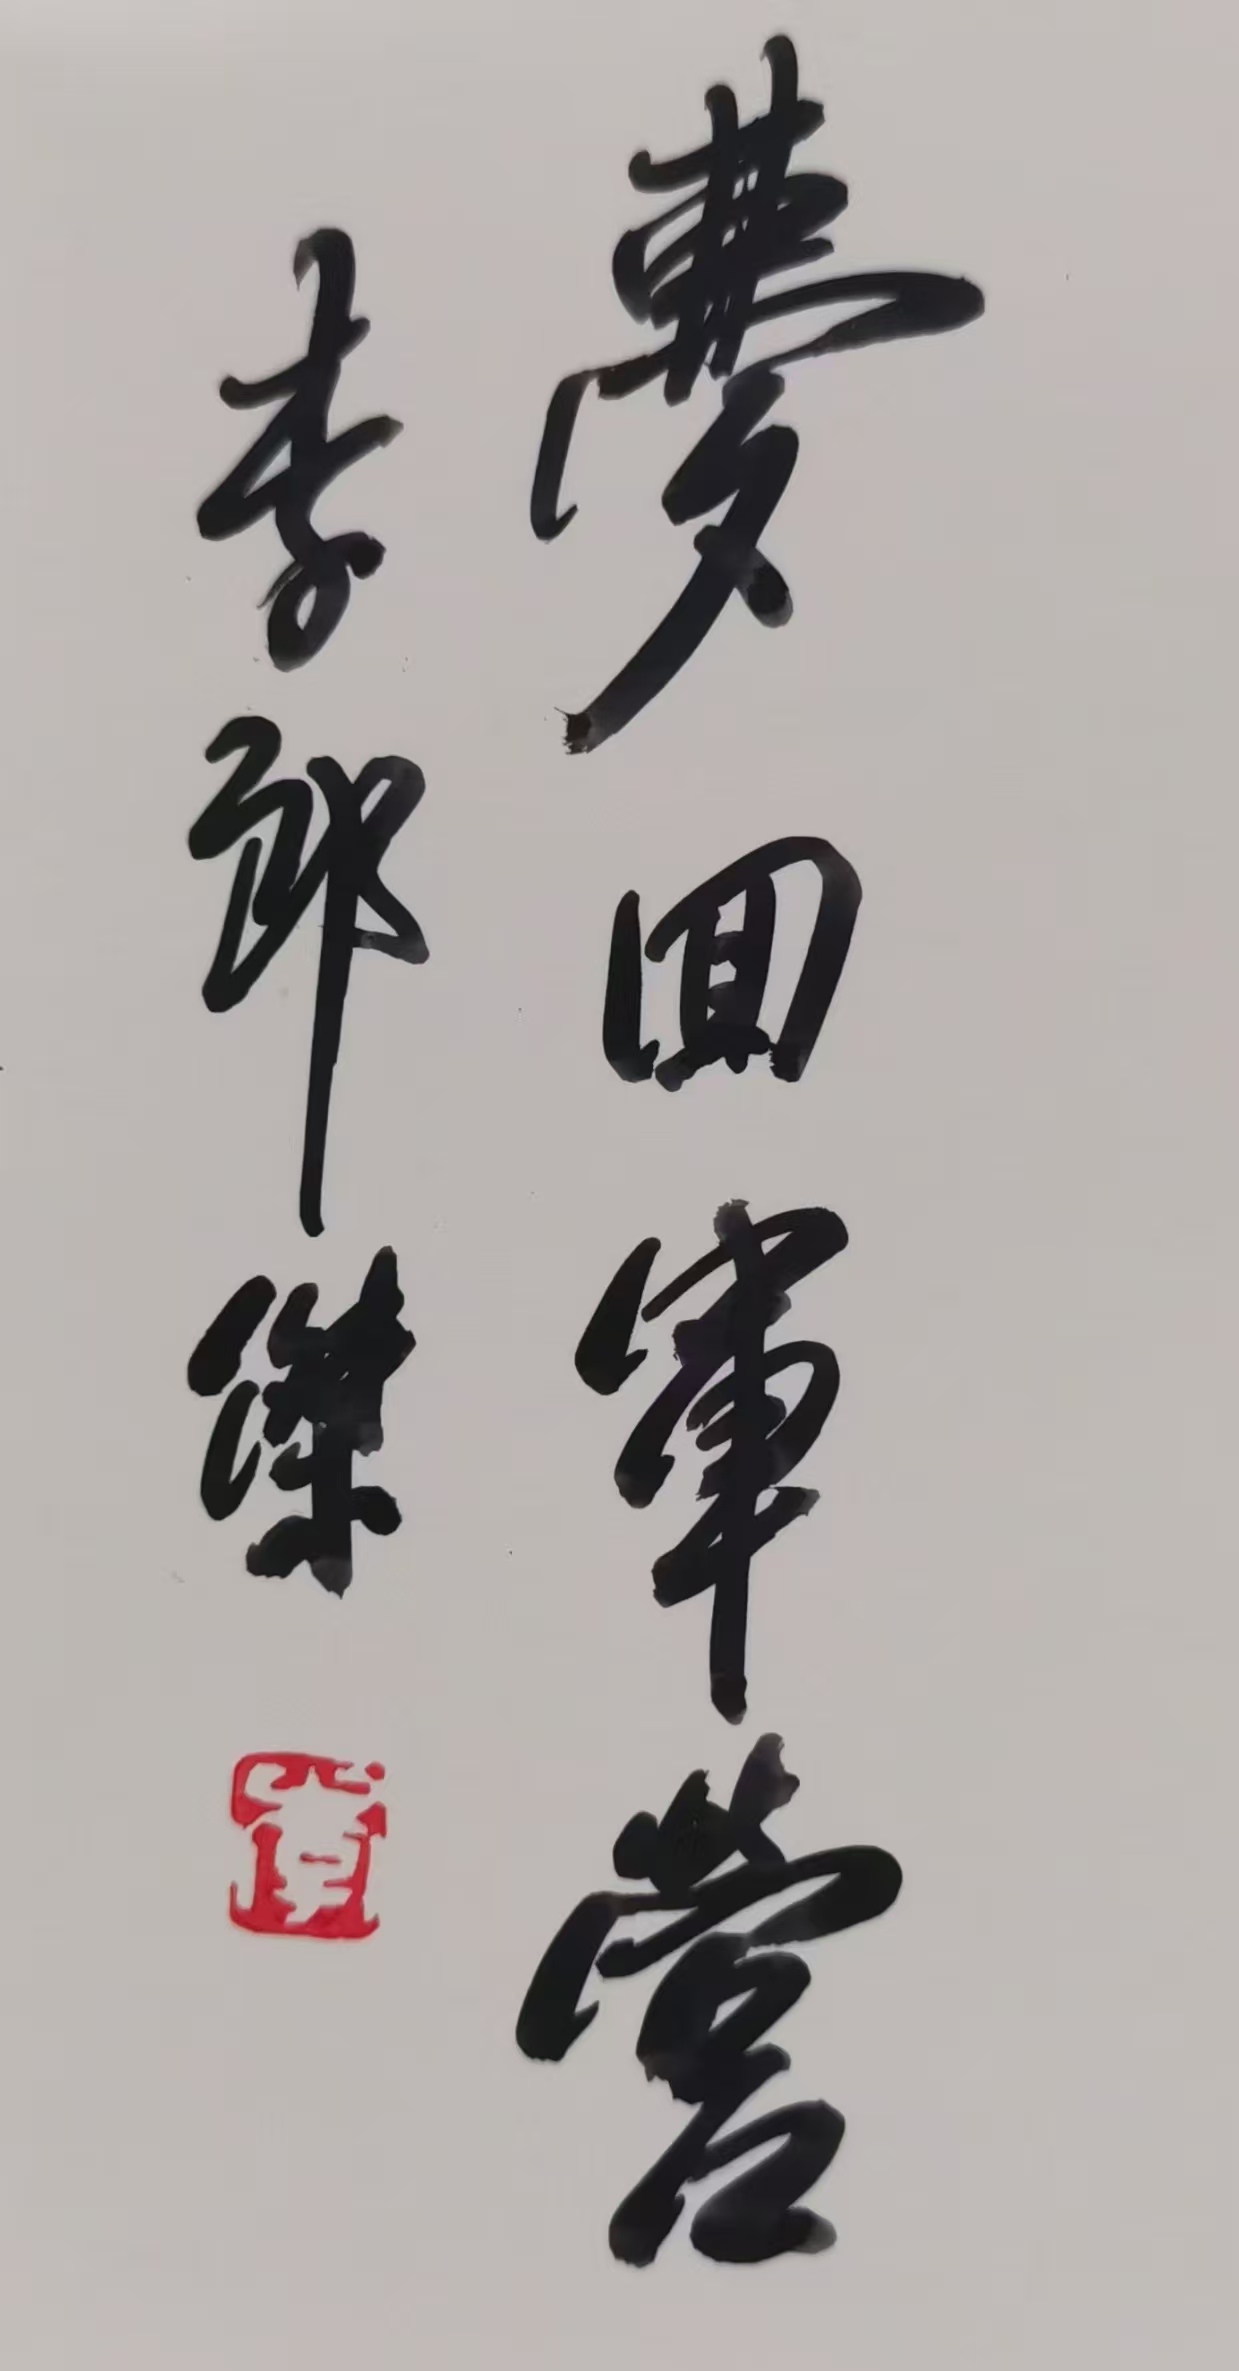 夢回軍營
李郎傑